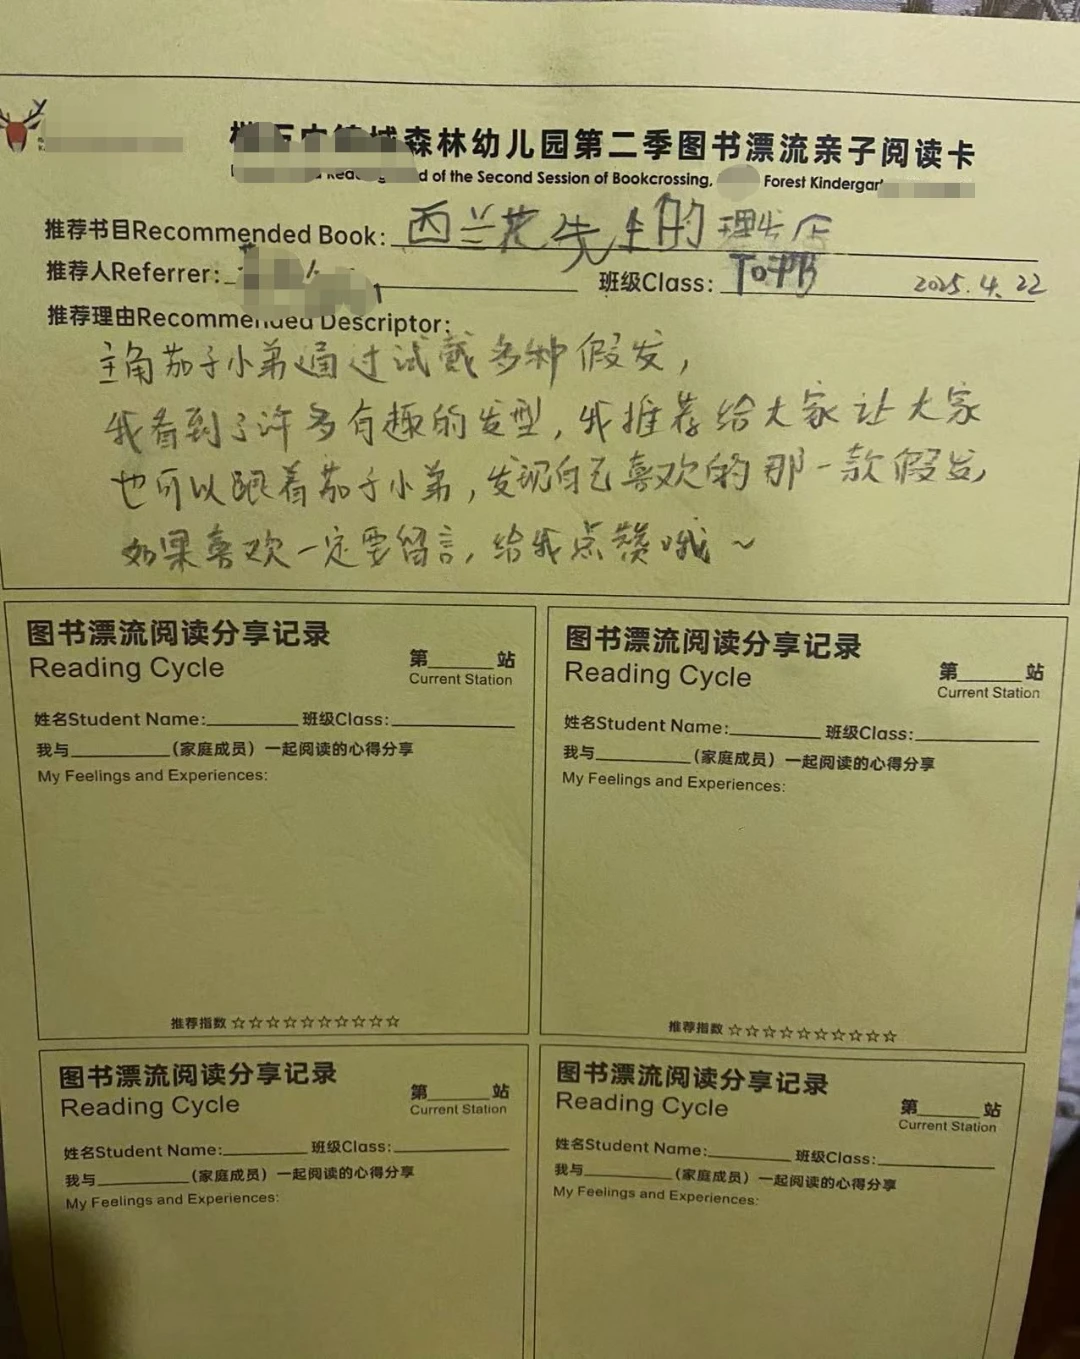 森林幼儿园第二季图书漂流亲子阅读卡
of the Second Session of Bookcrossing, Forest Kindergar
推荐书目Recommended Book: 西兰花先生的理发店
推荐人Referrer: 班级Class: 2025.4.22
推荐理由Recommended Descriptor:
主角茄子小弟通过试戴多种假发,
我看到了许多有趣的发型,我推荐给大家让大家
也可以跟着茄子小弟,发现自己喜欢的那一款假发,
如果喜欢一定要留言,给我点赞哦~
图书漂流阅读分享记录
Reading Cycle
第______站
Current Station
姓名Student Name:________班级Class:________
我与________(家庭成员)一起阅读的心得分享
My Feelings and Experiences:
推荐指数☆☆☆☆☆☆☆☆☆☆
图书漂流阅读分享记录
Reading Cycle
第______站
Current Station
姓名Student Name:________班级Class:________
我与________(家庭成员)一起阅读的心得分享
My Feelings and Experiences:
推荐指数☆☆☆☆☆☆☆☆☆☆
图书漂流阅读分享记录
Reading Cycle
第______站
Current Station
姓名Student Name:________班级Class:________
我与________(家庭成员)一起阅读的心得分享
My Feelings and Experiences:
图书漂流阅读分享记录
Reading Cycle
第______站
Current Station
姓名Student Name:________班级Class:________
我与________(家庭成员)一起阅读的心得分享
My Feelings and Experiences: